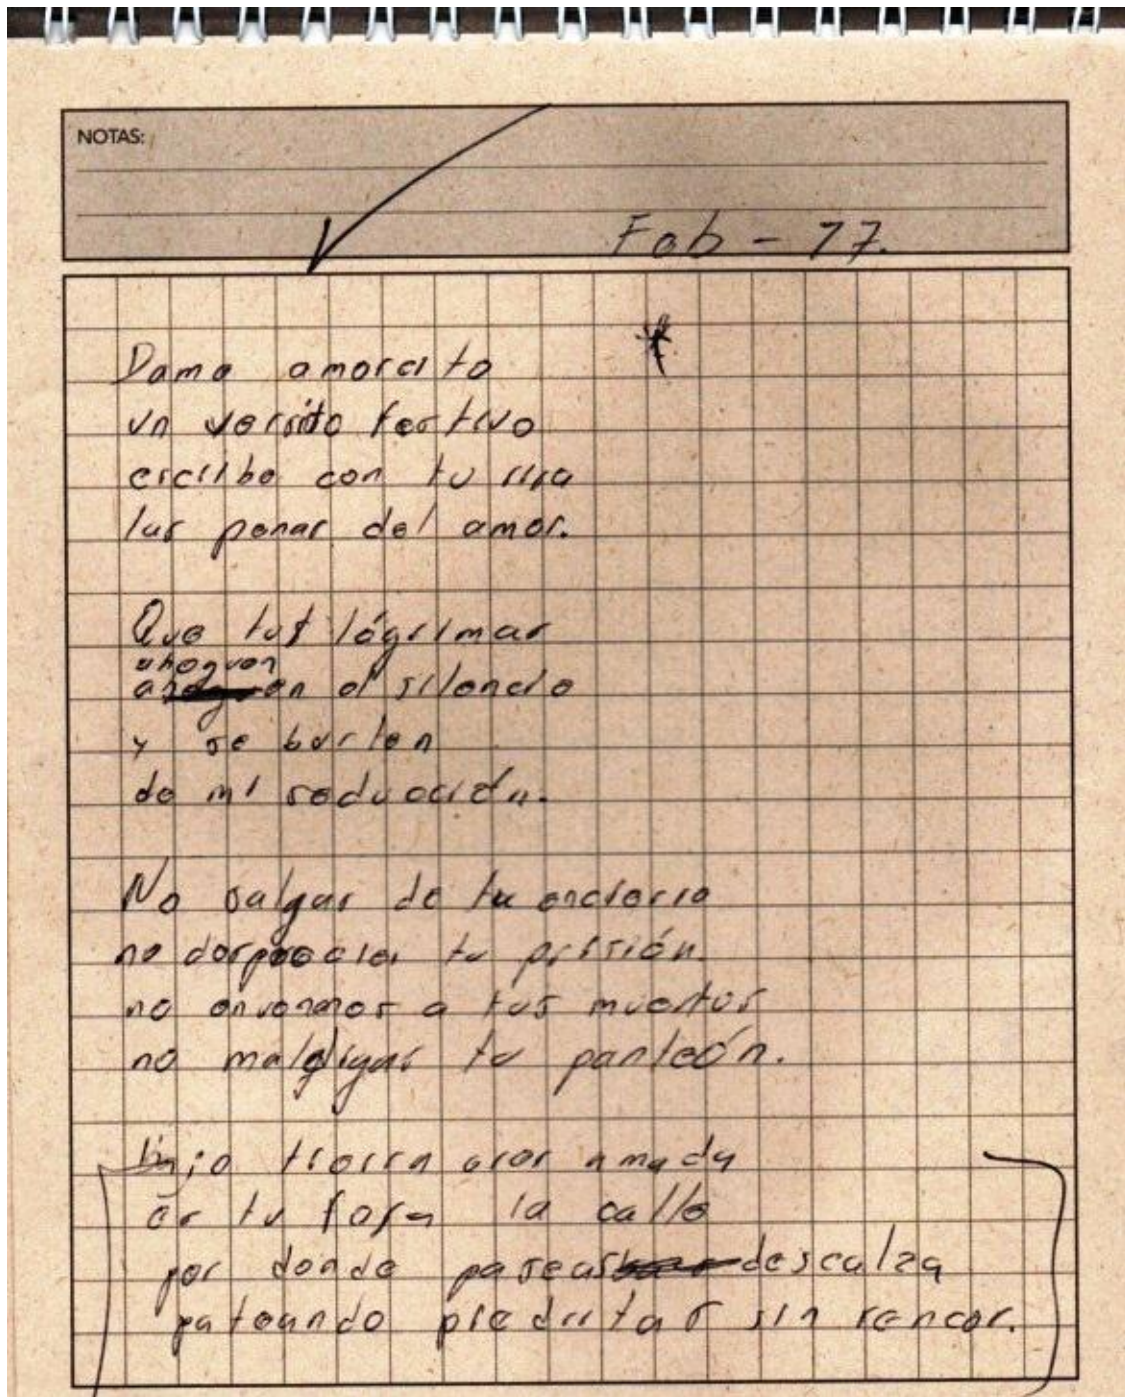 NOTAS:
Feb - 77.
Dame amorcito
un versito festivo
escribe con tu risa
las penas del amor.
Que tus lágrimas
ahoguen
el silencio
y se burlen
de mi seducción.
No salgas de tu encierro
no desprecies tu prisión
no envenenes a tus muertos
no maldigas tu panteón.
Bajo tierra eres amada
es tu fosa la calle
por donde paseas descalza
pateando piedritas sin rencor.